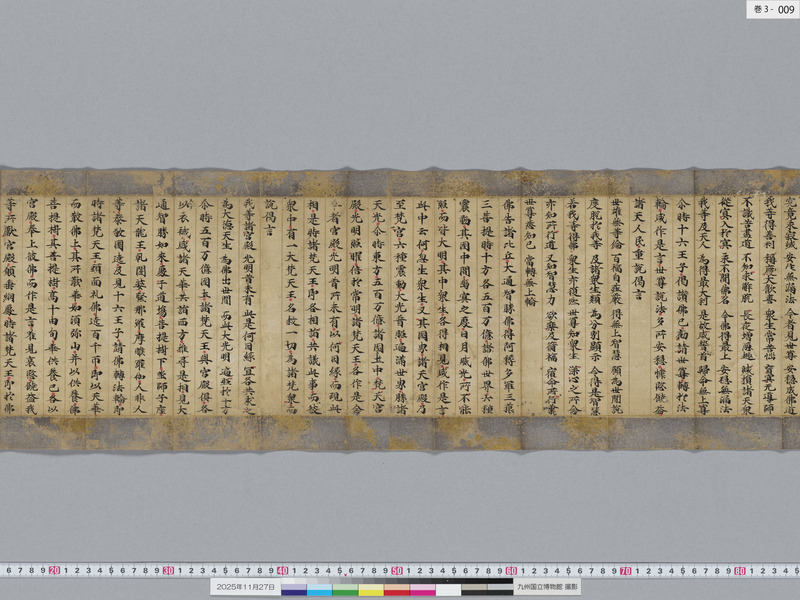 巻3 - 009
究竟永寂滅 安住無漏法 今者見世尊 安隱成佛道
我等得善利 稱慶大歡喜 衆生常苦惱 盲瞑無導師
不識苦盡道 不知求解脱 長夜增惡趣 減損諸天衆
從冥入於冥 永不聞佛名 今佛得最上 安隱無漏法
我等及天人 為得最大利 是故咸稽首 歸命無上尊
尒時十六王子偈讃佛已勸請世尊轉於法
輪咸作是言世尊説法多所安隱憐愍饒益
諸天人民重説偈言
世雄無等倫 百福自莊嚴 得無上智慧 願為世間説
度脱於我等 及諸衆生類 為分別顯示 令得是智慧
若我等得佛 衆生亦復然 世尊知衆生 深心之所念
亦知所行道 又知智慧力 欲樂及脩福 宿命所行業
世尊悉知已 當轉無上輪
佛告諸比丘大通智勝佛得阿耨多羅三藐
三菩提時十方各五百万億諸佛世界六種
震動其國中間幽冥之處日月威光所不能
照而皆大明其中衆生各得相見咸作是言
此中云何忽生衆生又其國界諸天宮殿乃
至梵宮六種震動大光普照遍滿世界勝諸
天光尒時東方五百万億諸國土中梵天宮
殿光明照曜倍於常明諸梵天王各作是念
今者宮殿光明昔所未有以何因緣而現此
相是時諸梵天王即各相詣共議此事而彼
衆中有一大梵天王名救一切為諸梵衆而
説偈言
我等諸宮殿 光明昔未有 此是何因緣 宜各共求之
為大德天生 為佛出世間 而此大光明 遍照於十方
尒時五百万億國土諸梵天王與宮殿俱各
以衣裓盛諸天華共詣西方推尋是相見大
通智勝如來處于道場菩提樹下坐師子座
諸天龍王乾闥婆緊那羅摩睺羅伽人非人
等恭敬圍遶及見十六王子請佛轉法輪即
時諸梵天王頭面礼佛遶百千帀即以天華
而散佛上其所散華如須弥山并以供養佛
菩提樹其菩提樹高十由旬華供養已各以
宮殿奉上彼佛而作是言唯見哀愍饒益我
等所獻宮殿願垂納處時諸梵天王即於佛
2025年11月27日
九州国立博物館 撮影